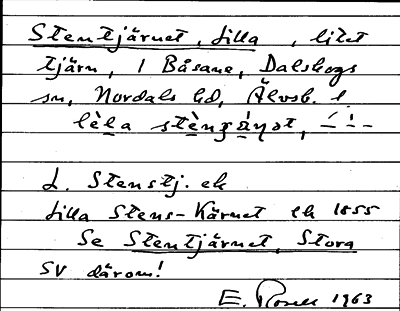 Stentjärnet, Lilla, litet
tjärn, i Båsane, Dalskogs
sn, Nordals hd, Älvsb. l.
lèla
L. Stenstj. ek
Lilla Stens-Kärnet ek 1855
Se Stentjärnet, Stora
SV därom!
E. 1963